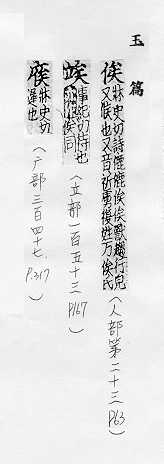 玉 篇
俟 牀史切詩儦儦俟俟獸趨行皃
又候也又音祈虜複姓万俟氏
(人部第二十三 P63)
竢 事紀切待也
亦作俟同
(立部一百五十三 P167)
牀史切
也
(户部三百四十七. P.317)